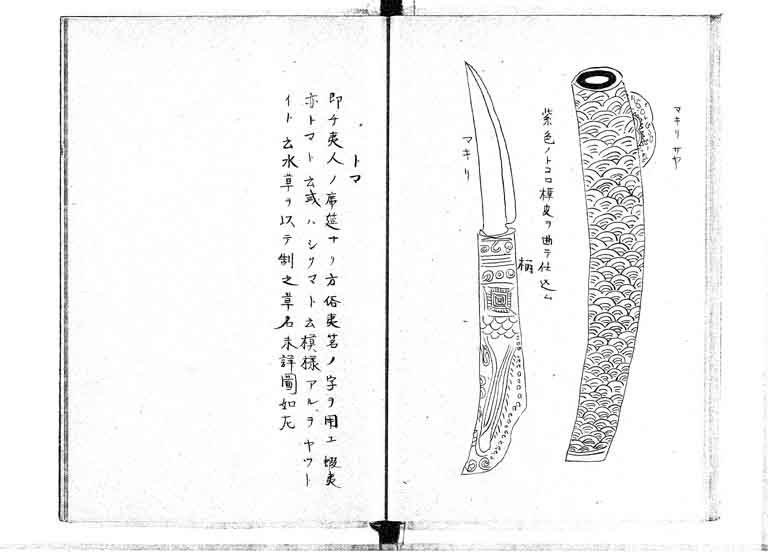 マキリ サヤ
紫色ノトコロ樺皮ヲ曲テ仕込ム
柄
マキリ
トマ
即チ夷人ノ席莚ナリ方俗夷筵ノ字ヲ用ユ蝦夷
亦トマト云或ハシリマト云模様アルヲヤツト
イト云水草ヲ以テ制之草名未詳圖如左